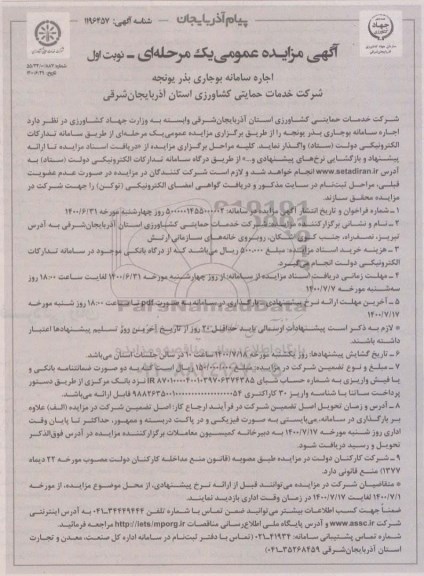 پیام آذربایجان
شناسه آگهی: ۱۱۹۶۴۵۷
آگهی مزایده عمومی یک مرحله‌ای - نوبت اول
اجاره سامانه بوجاری بذر یونجه
شرکت خدمات حمایتی کشاورزی استان آذربایجان‌شرقی
شرکت خدمات حمایتی کشاورزی استان آذربایجان‌شرقی وابسته به وزارت جهاد کشاورزی در نظر دارد
اجاره سامانه بوجاری بذر یونجه را از طریق برگزاری مزایده عمومی یک مرحله‌ای از طریق سامانه تدارکات
الکترونیکی دولت (ستاد) واگذار نماید. کلیه مراحل برگزاری مزایده از دریافت اسناد مزایده تا ارائه
پیشنهاد و بازگشایی نرخ‌های پیشنهادی و ... از طریق درگاه سامانه تدارکات الکترونیکی دولت (ستاد) به
آدرس www.setadiran.ir انجام خواهد شد و لازم است شرکت کنندگان در مزایده در صورت عدم عضویت
قبلی، مراحل ثبت‌نام در سایت مذکور و دریافت گواهی امضای الکترونیکی (توکن) را جهت شرکت در
مزایده محقق سازند.
۱ - شماره فراخوان و تاریخ انتشار آگهی مزایده در سامانه: روز چهارشنبه مورخه ۱۴۰۰/۶/۳۱
۲ - نام و نشانی برگزارکننده مزایده: شرکت خدمات حمایتی کشاورزی استان آذربایجان‌شرقی به آدرس
تبریز، نصفراه، جنب روبروی خانه‌های سازمانی ارتش
۳ - هزینه خرید اسناد مزایده: مبلغ ۵۰۰/۰۰۰ ریال می‌باشد که از درگاه بانکی موجود در سامانه تدارکات
الکترونیکی دولت انجام می‌گیرد.
۴ - مهلت زمانی دریافت اسناد مزایده از سامانه: از روز چهارشنبه مورخه ۱۴۰۰/۶/۳۱ لغایت ساعت ۱۸:۰۰ روز
سه‌شنبه مورخه ۱۴۰۰/۷/۷
۵ - آخرین مهلت ارائه نرخ پیشنهادی و بارگذاری در سامانه به صورت pdf تا ساعت ۱۸:۰۰ روز شنبه مورخه
۱۴۰۰/۷/۱۷
* لازم به ذکر است پیشنهادات ارسالی باید حداقل ۲۰ روز از تاریخ آخرین روز تسلیم پیشنهادها اعتبار
داشته باشند.
۶ - تاریخ گشایش پیشنهادها: روز یکشنبه مورخه ۱۴۰۰/۷/۱۸ ساعت ۱۰ در سالن جلسات استان می‌باشد.
۷ - مبلغ و نوع تضمین شرکت در مزایده: مبلغ ریال است که به دو صورت ضمانتنامه بانکی و
یا فیش واریزی به شماره حساب شبای نزد بانک مرکزی از طریق دستور
پرداخت ساتنا با شناسه واریز ۳۰ کاراکتری قابل ارائه می‌باشد.
۸ - آدرس و زمان تحویل اصل تضمین شرکت در فرآیند ارجاع کار: اصل تضمین شرکت در مزایده (الف) علاوه
بر بارگذاری در سامانه، می‌بایستی به صورت فیزیکی و در پاکت دربسته و ممهور، حداکثر تا پایان وقت
اداری روز شنبه مورخه ۱۴۰۰/۷/۱۷ به دبیرخانه کمیسیون معاملات برگزارکننده مزایده در آدرس فوق‌الذکر
تحویل و رسید دریافت شود.
۹ - شرکت کارکنان دولت در مزایده طبق مصوبه (قانون منع مداخله کارکنان دولت مصوب مورخه ۲۲ دیماه
۱۳۳۷) منع قانونی دارد.
* متقاضیان شرکت در مزایده می‌توانند قبل از ارائه نرخ پیشنهادی، از محل موضوع مزایده، از مورخه
۱۴۰۰/۷/۱ لغایت ۱۴۰۰/۷/۱۷ در زمان وقت اداری بازدید نمایند.
ضمناً جهت کسب اطلاعات بیشتر می‌توانید ضمن تماس با شماره ۳۴۴۴۹۴۴۴-۰۴۱ به آدرس اینترنتی
شرکت www.assc.ir و آدرس پایگاه ملی اطلاع‌رسانی مناقصات http://iets/mporg.ir مراجعه فرمائید.
شماره تماس پشتیبانی سامانه: ۴۱۹۳۴-۰۲۱ (تماس با دفتر ثبت‌نام در سامانه اداره کل صنعت، معدن و تجارت
استان آذربایجان‌شرقی ۳۵۲۶۸۴۵۹-۰۴۱)